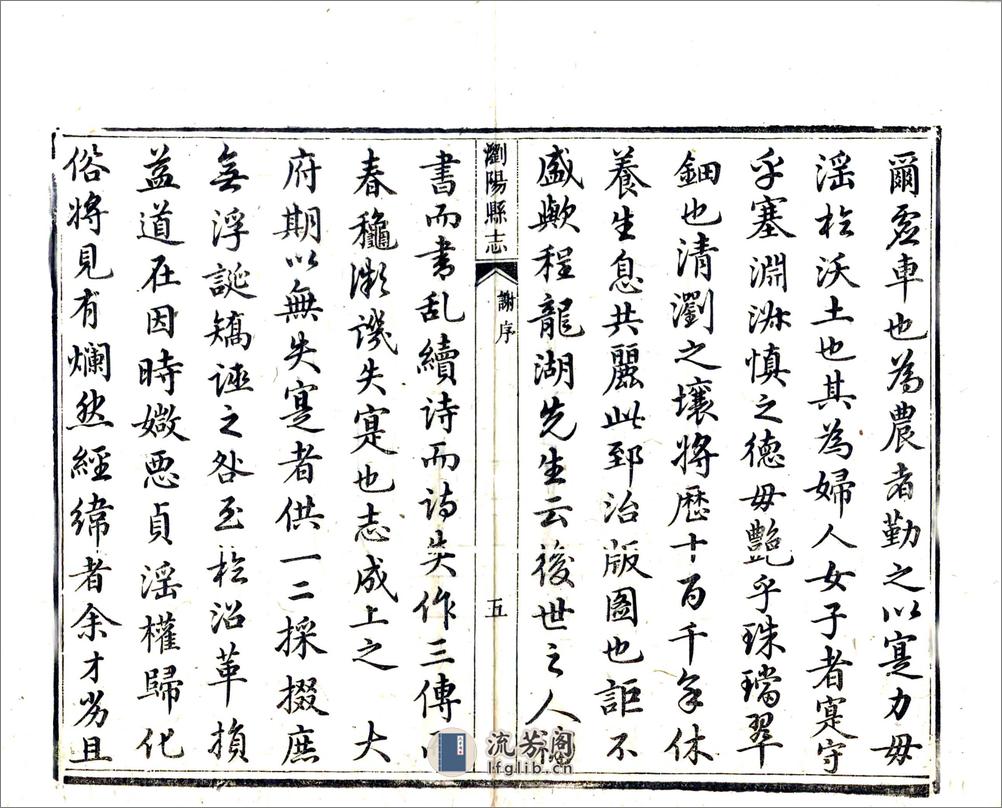 爾虗車也為農者勤之以寔力毋
滛於沃土也其為婦人女子者寔守
乎塞淵淑慎之德毋艷乎珠璫翠
鈿也清瀏之壤將歷十百千年休
養生息共麗此郅治版圖也詎不
盛歟程龍湖先生云後世之人
瀏陽縣志
謝序
五
書而書乱續诗而诗失作三傳而
春穐漸譏失寔也志成上之 大
府期以無失寔者供一二採掇庶
無浮誕矯誣之咎至於沿革損
益道在因時媺悪貞滛權歸化
俗將見有爛然經緯者余才劣且
流芳阁
lfglib.cn